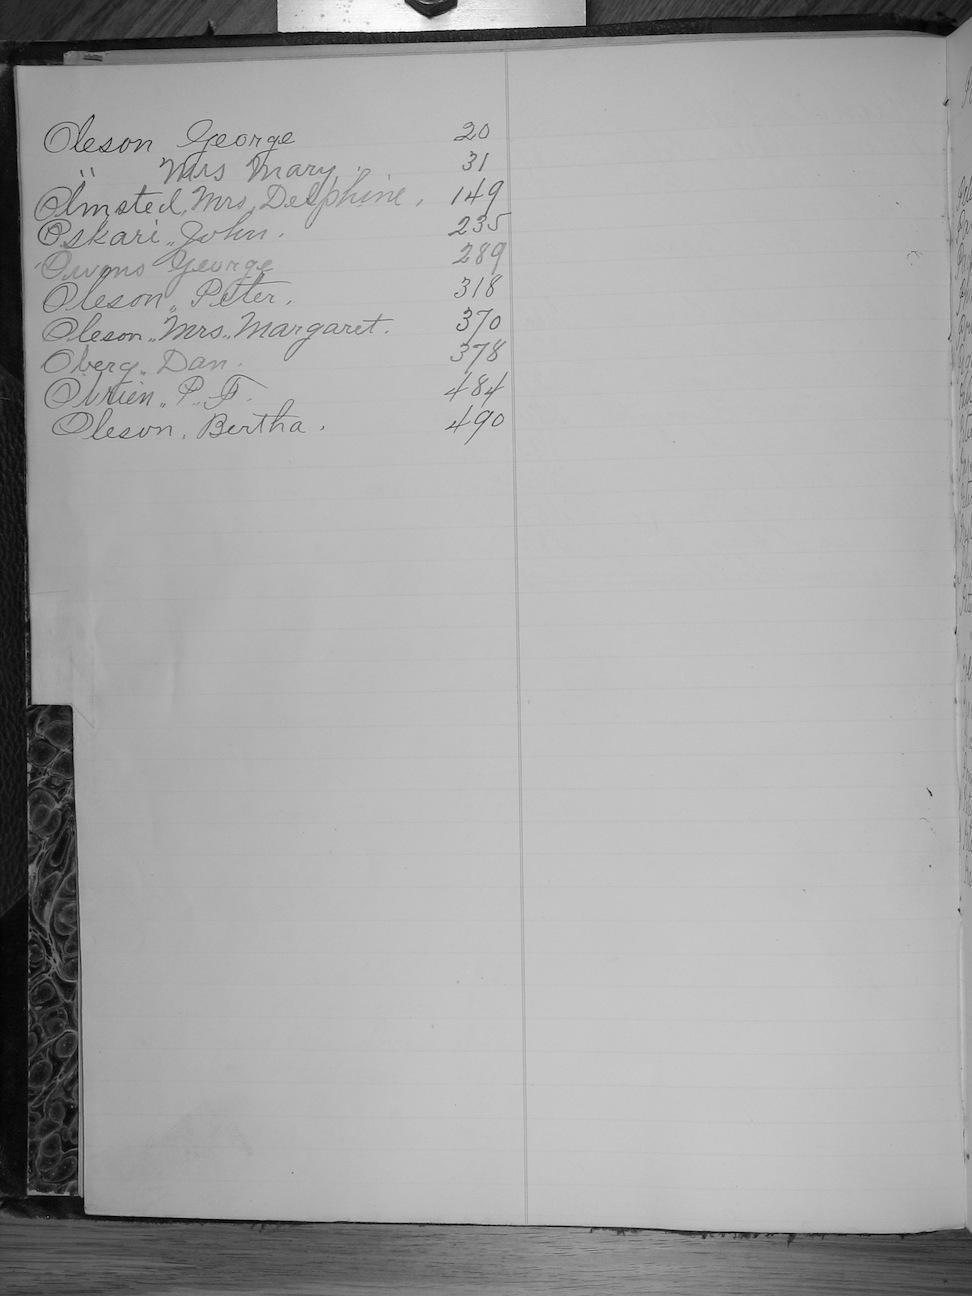 Oleson George 20
" Mrs Mary. 31
Olmsted, Mrs, Delphine. 149
Oskari, John. 235
Owens George 289
Oleson, Peter. 318
Oleson, Mrs, Margaret. 370
Oberg, Dan. 378
Obrien, P. F. 484
Oleson, Bertha. 490